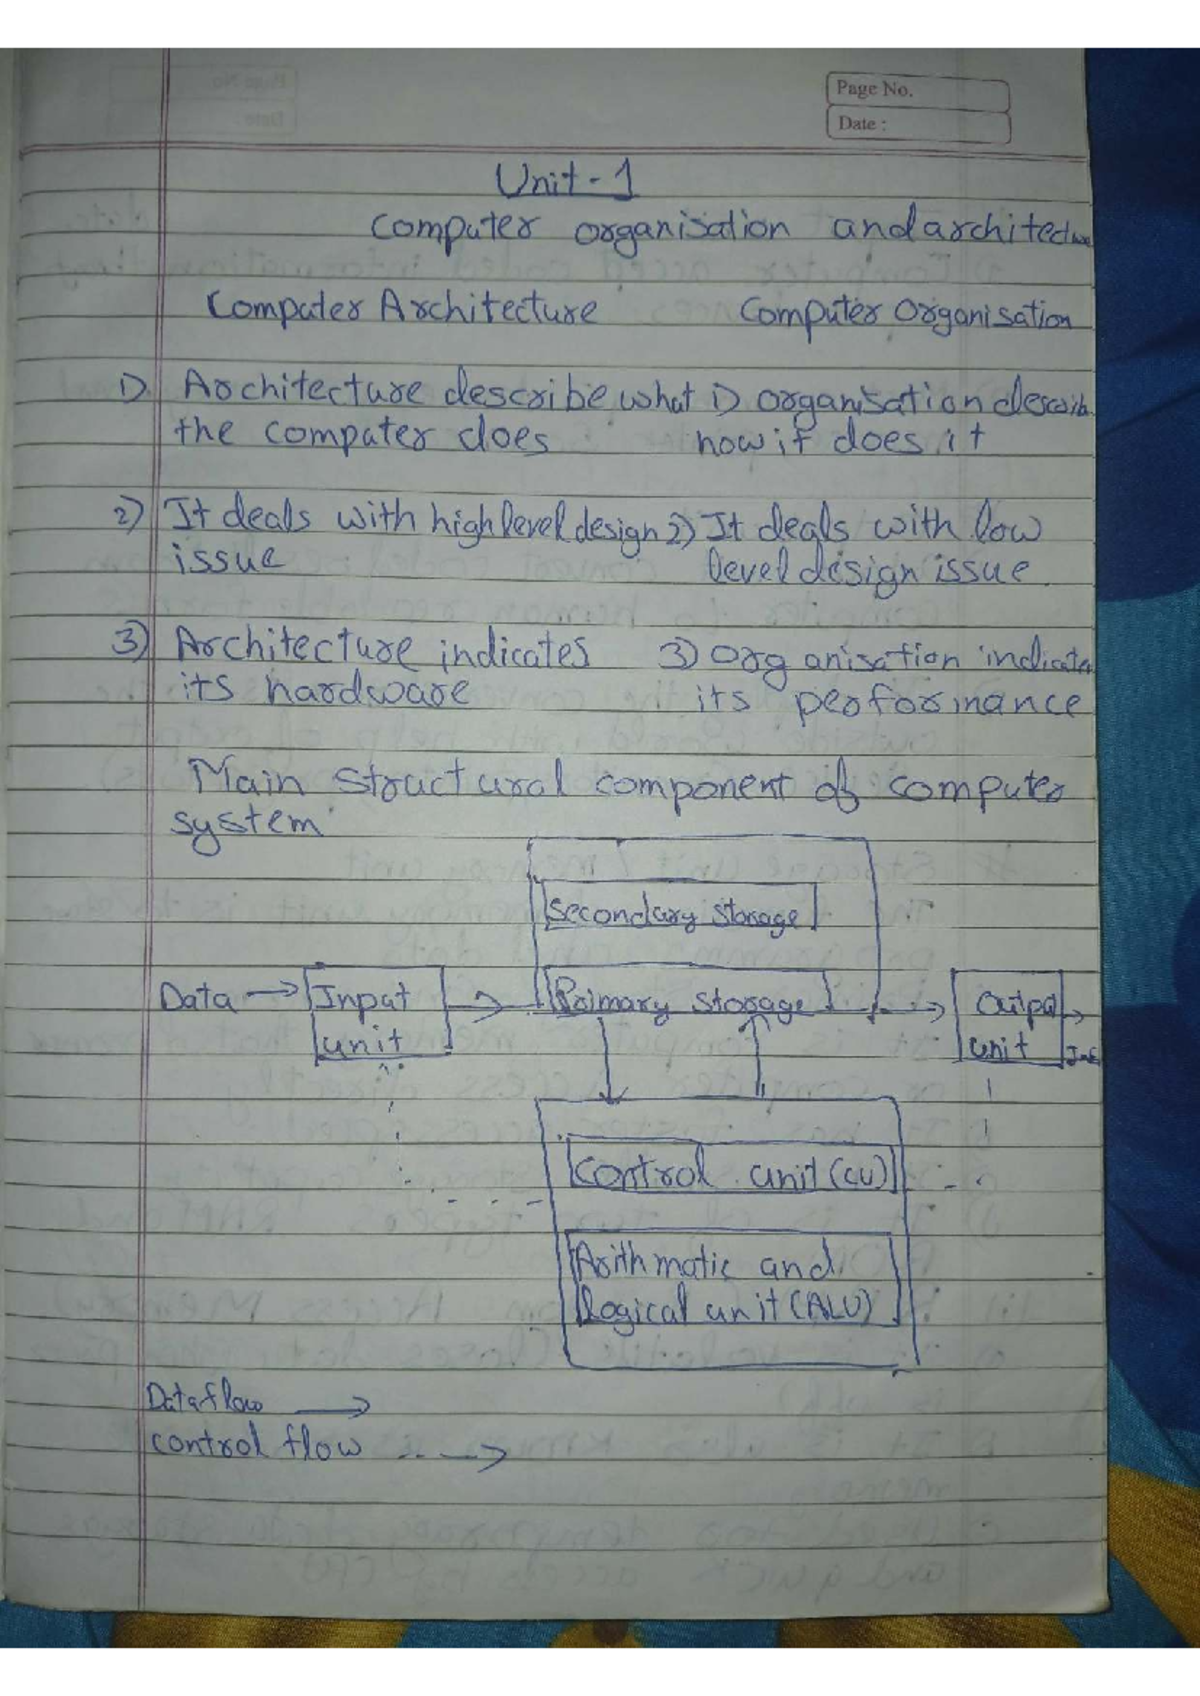 Page No.
Date :
Unit - 1
Computer organisation and architecture
Computer Architecture Computer Organisation
1) Architecture describe what 1) organisation describ
the computer does how it does it
2) It deals with high level design 2) It deals with low
issue level design issue
3) Architecture indicates 3) Organisation indicates
its hardware its performance
Main structural component of computer
system
Secondary storage
Data → Input Primary storage Output
unit unit
Control unit (CU)
Arithmatic and
logical unit (ALU)
Data flow →
control flow -- →